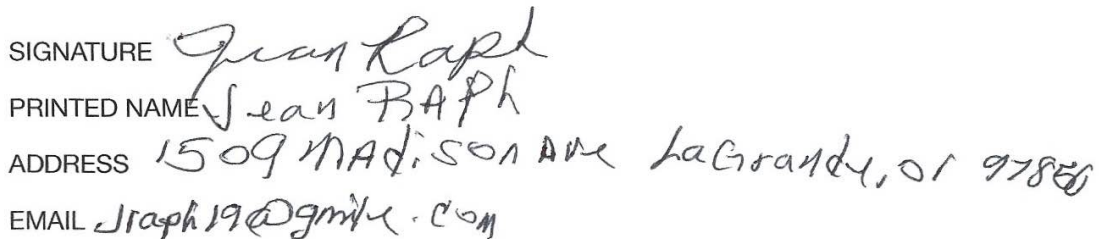 SIGNATURE Jean Raph
PRINTED NAME Jean RAPh
ADDRESS 1509 MADiSON AVE LaGrande, OR 97850
EMAIL Jraph19@gmile.com